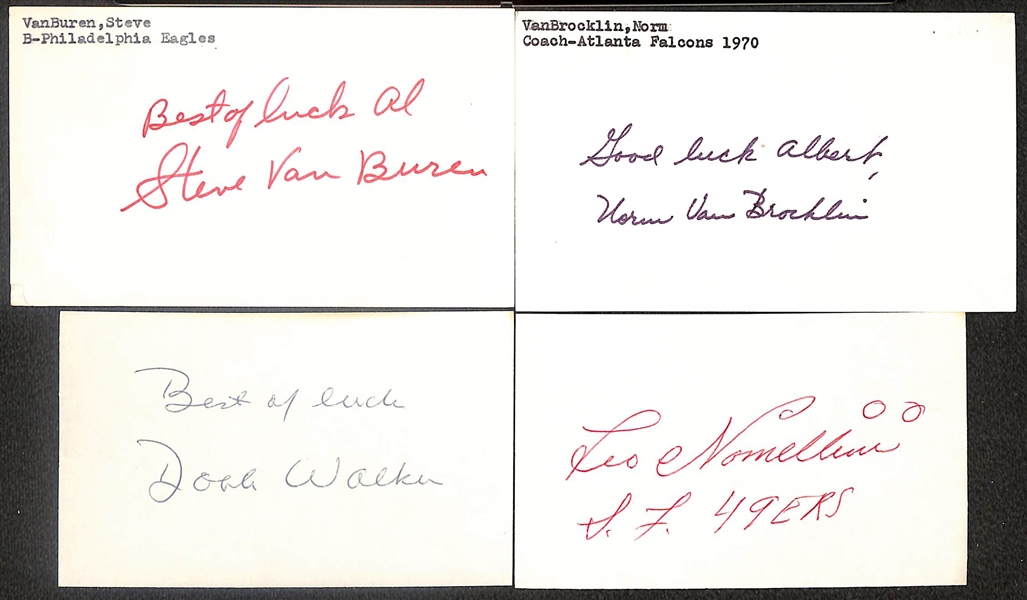 VanBuren,Steve
B-Philadelphia Eagles
Best of luck Al
Steve Van Buren
VanBrocklin,Norm
Coach-Atlanta Falcons 1970
Good luck Albert,
Norm Van Brocklin
Best of luck
Doak Walker
Leo Nomellini
S. F. 49ERS